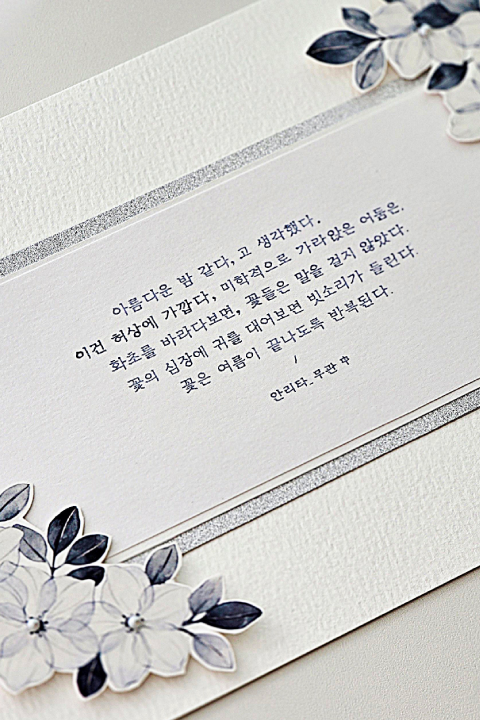 아름다운 밤 같다, 고 생각했다.
이건 허상에 가깝다, 미학적으로 가라앉은 어둠은.
화초를 바라다보면, 꽃들은 말을 걸지 않았다.
꽃의 심장에 귀를 대어보면 빗소리가 들린다.
꽃은 여름이 끝나도록 반복된다.
/
안리타_무란 中